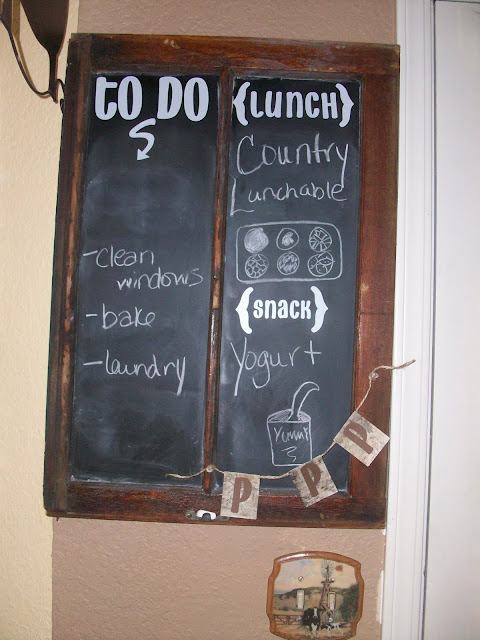 to Do
-clean
windows
-bake
-laundry
{Lunch}
Country
Lunchable
{snack}
Yogurt
Yumm
P P P